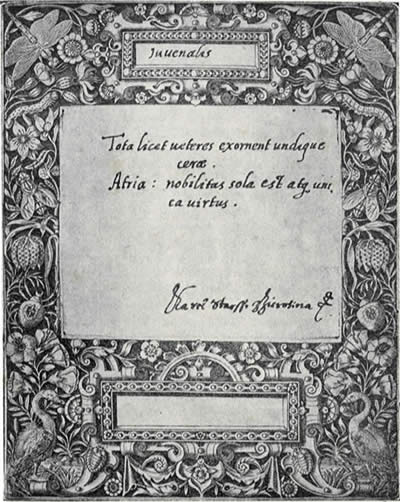 Iuuenalis
Tota licet ueteres exornent undique
ceræ.
Atria: nobilitas sola est atq, uni,
ca uirtus.
Karel z Zierotina